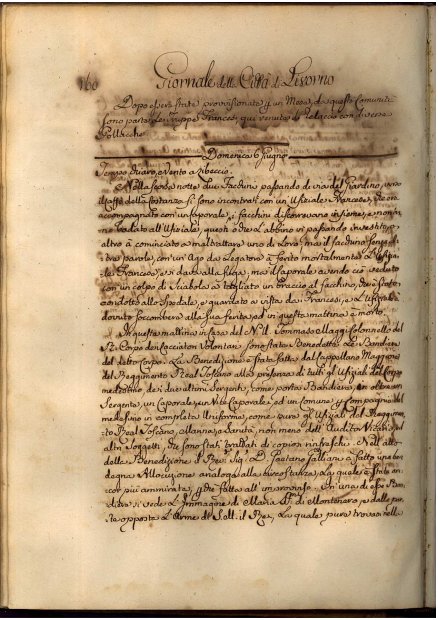 160 Giornale della Città di Livorno
Dopo essere state provisionate p un Mese da questa Comunità
sono partite le Truppe Francesi qui venute di Relascio con diverse
Domenica 6 Giugno
Tempo Vario, e Vento a Libeccio
Nella scorsa notte due Facchini passando di via del Giardino, verso
il Caffè della Costanza si sono incontrati con un Ufiziale Francese, che era
accompagnato con un Caporale, i facchini discorrevano insieme, e non
badato all' Ufiziale, questi o che l' abbino vi passando investito, o
altro à cominciato a maltrattare uno di loro, ma il facchino senza
dire parole, con un' Ago da Legatore à ferito mortalmente l' Ufizia-
le Francese, e si dava alla fuga, ma il Caporale avendo ciò veduto
con un colpo di Sciabola à tagliato un braccio al facchino, che è stato
condotto allo Spedale, e guardato a vista da Francesi, e l' Ufiziale à
dovuto soccombere alla sua ferita, ed in questa mattina è morto.
In questa mattina in casa del N. U. Tommaso Maggi Colonnello del
R. Corpo dei Cacciatori Volontari sono state Benedette le Bandiere
del detto Corpo. La Benedizione è stata fatta dal Cappellano Maggiore
del Reggimento Real Toscano alla presenza di tutti gli Ufiziali del Corpo
medesimo, dei due ultimi Sergenti, come porta Bandiera, ed oltre un
Sergente, un Caporale, un Vice Caporale, ed un Comune p Compagnia del
medesimo in completa Uniforme, come pure gli Ufiziali del Reggimen-
to Real Toscano, Marina, e Sanità, non meno dell' Auditor Vicario, ed
altri Soggetti che sono stati trattati di copiosi rinfreschi. Nell' atto
della Benedizione il Sig. D. Gaetano à fatto una ben
degna Allocuzione analoga alla circostanza, la quale è stata an-
cor più ammirata, p che fatta all' improvviso. In una di esse Ban-
diere si vede l' Immagine di Maria SS. di Montenero, e dalle par-
te opposta l' Arme di S. M. il Re, la quale pure trovasi nelle